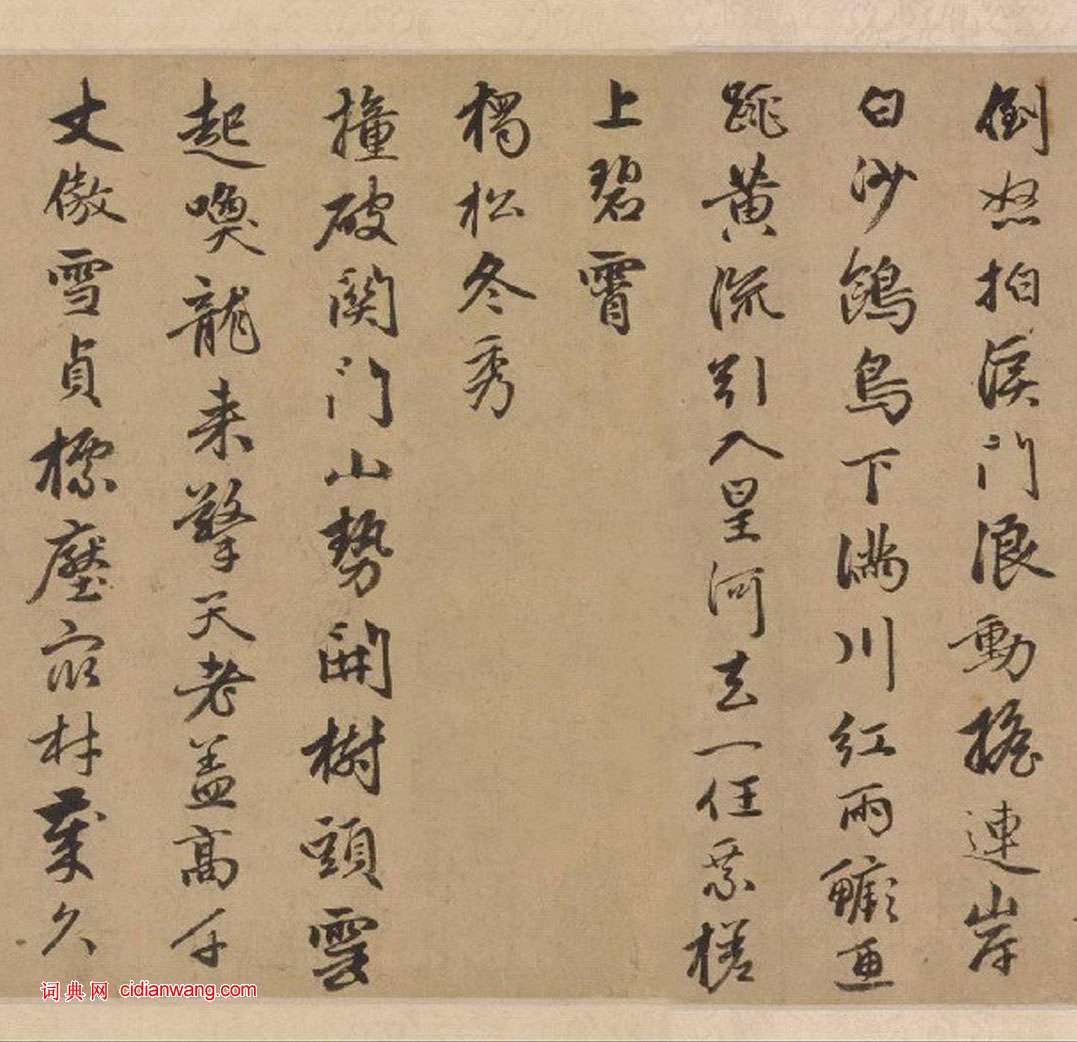 倒怒拍淚門浪動搖連岸
白沙鷗鳥下滿川紅雨鱣直
跳黃流引入星河去一任乘槎
上碧霄
獨松冬秀
撞破關門山勢開樹頭雲
起喚龍來擎天老蓋高千
丈傲雪貞標壓眾材歲久
词典网 cidianwang.com